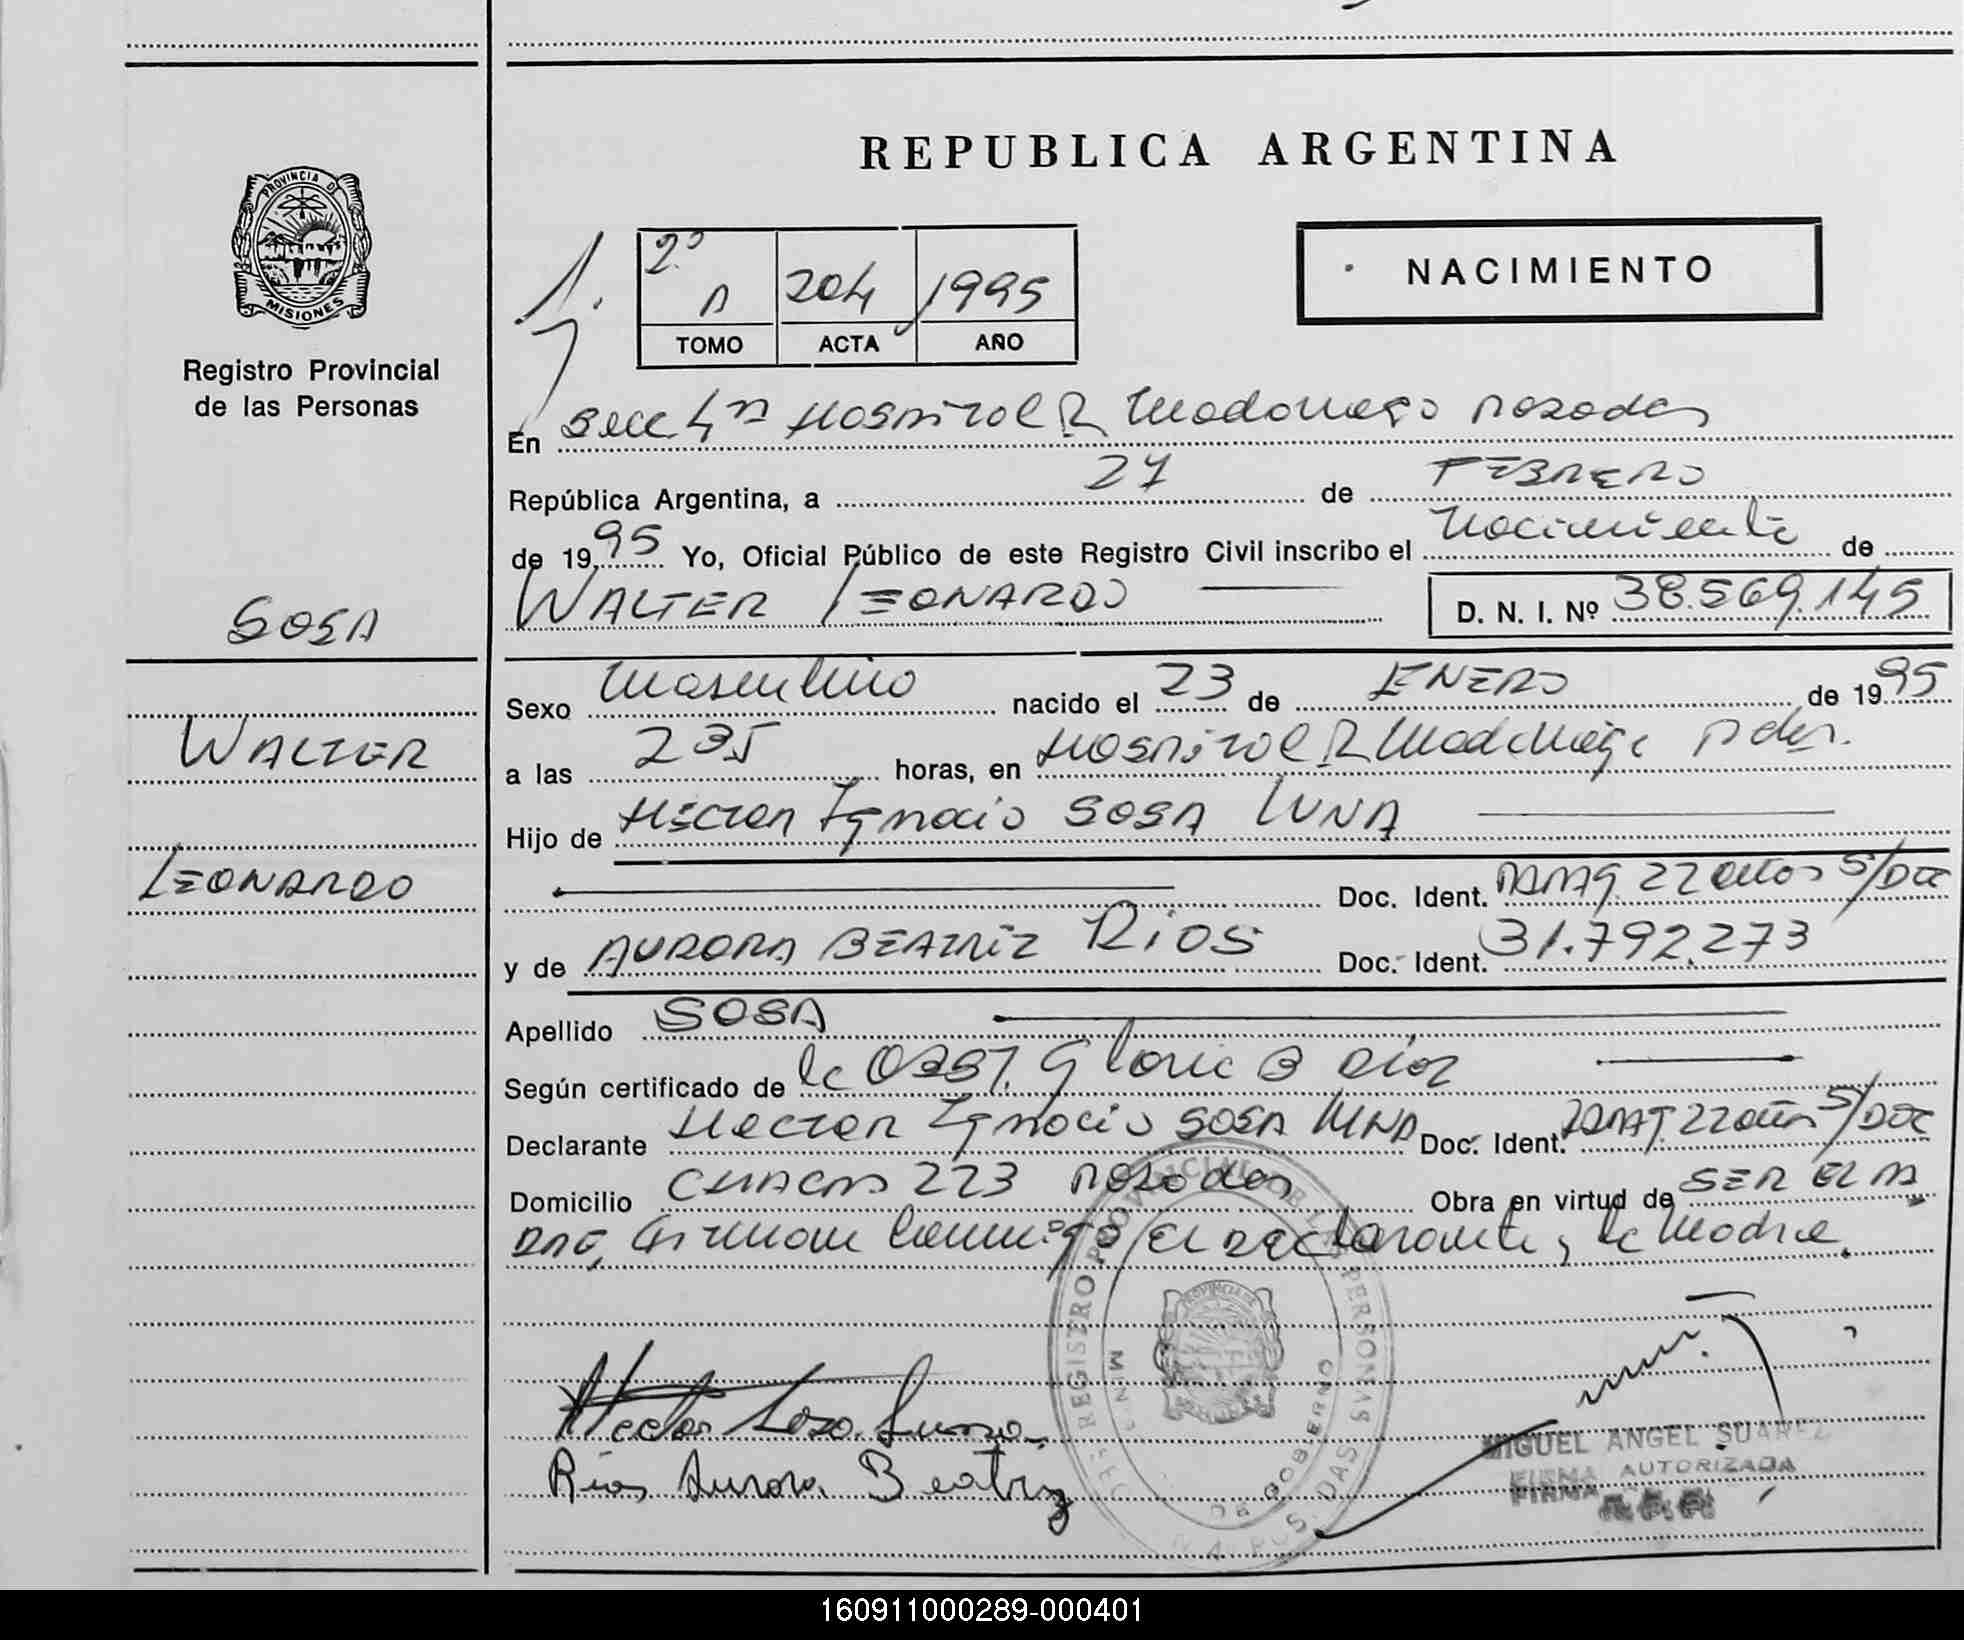 REPUBLICA ARGENTINA
PROVINCIA DE
MISIONES
Registro Provincial
de las Personas
2º A 204 1995
TOMO ACTA AÑO
NACIMIENTO
En Secc 4ta Hospital R Madariaga Posadas
República Argentina, a 27 de FEBRERO
de 1995 Yo, Oficial Público de este Registro Civil inscribo el Nacimiento de
WALTER LEONARDO D. N. I. Nº 38.569.145
SOSA
WALTER
LEONARDO
Sexo Masculino nacido el 23 de ENERO de 1995
a las 235 horas, en Hospital R Madariaga Pdas.
Hijo de Hector Ignacio SOSA LUNA
Doc. Ident. 22 años S/Doc
y de AURORA BEATRIZ RIOS Doc. Ident. 31.792.273
Apellido SOSA
Según certificado de la Obst. Gloria B Diaz
Declarante Hector Ignacio SOSA LUNA Doc. Ident. 22 años S/Doc
Domicilio CHACRA 223 Posadas Obra en virtud de SER EL PA
DRE, Firman Conmigo El Declarante y la Madre.
REGISTRO PROVINCIAL DE LAS PERSONAS
DE GOBIERNO
Hector Sosa Luna
Rios Aurora Beatriz
MIGUEL ANGEL SUAREZ
FIRMA AUTORIZADA
160911000289-000401